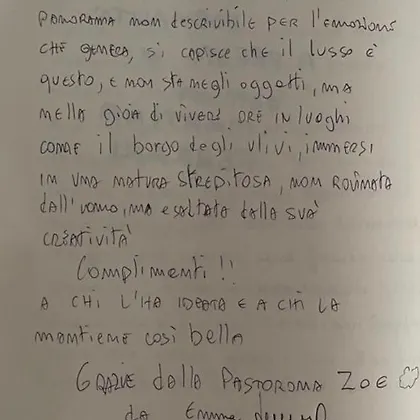 PANORAMA NON descrivibile PER l'emozione
CHE genera, si capisce che il lusso è
questo, e non sta negli oggetti, ma
nella gioia di vivere ORE IN luoghi
come il borgo degli ulivi, immersi
in una natura STREPITOSA, non rovinata
dall'uomo, ma esaltata dalla sua
creatività
Complimenti !!
A CHI L'HA IDEATA E A CHI LA
mantiene così bella
GRAZIE dalla PASTOROMA ZOE
da Emma